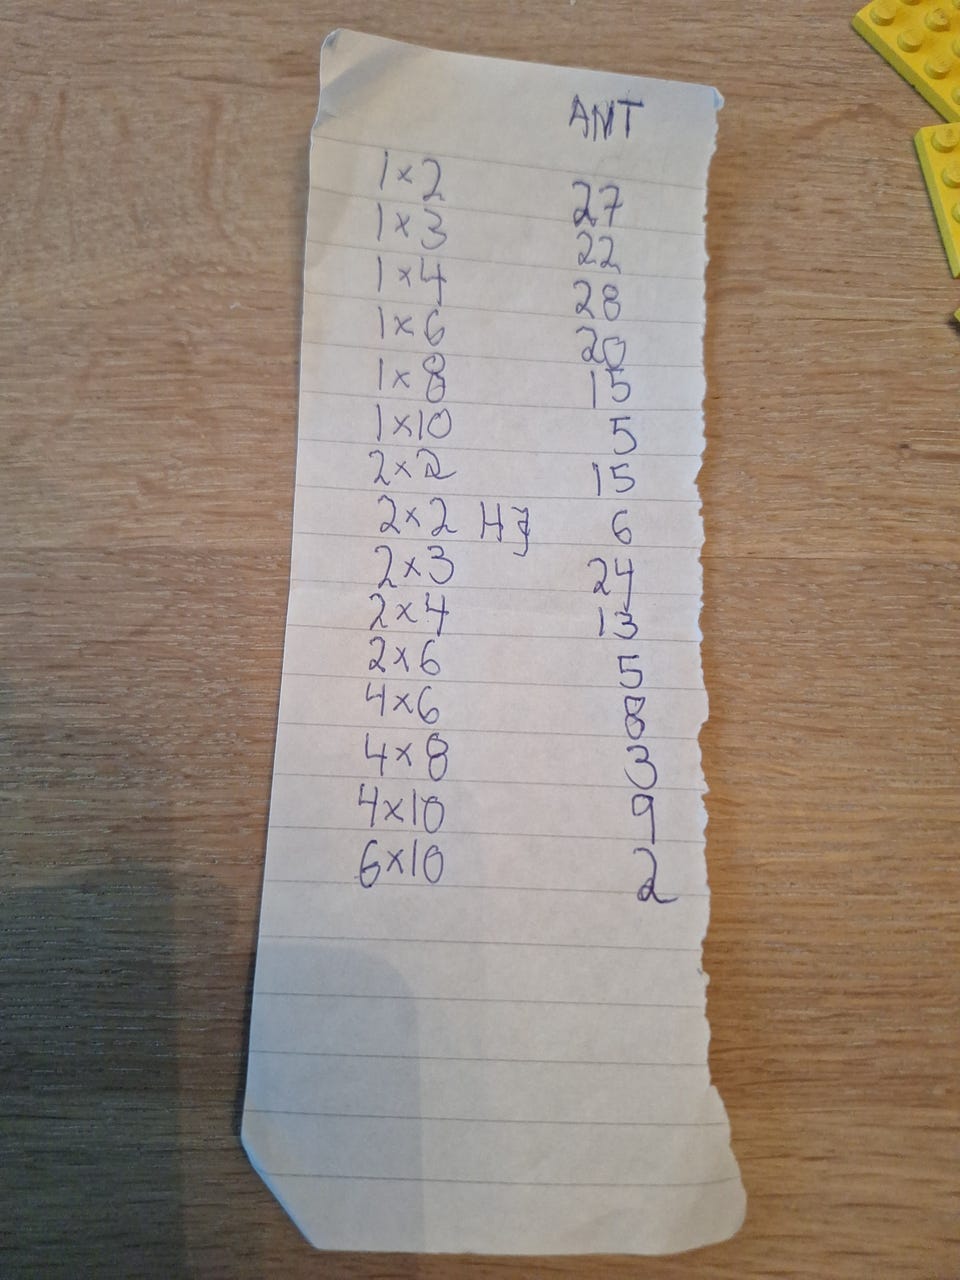 ANT
1×2 27
1×3 22
1×4 28
1×6 20
1×8 15
1×10 5
2×2 15
2×2 Hj 6
2×3 24
2×4 13
2×6 5
4×6 8
4×8 3
4×10 9
6×10 2